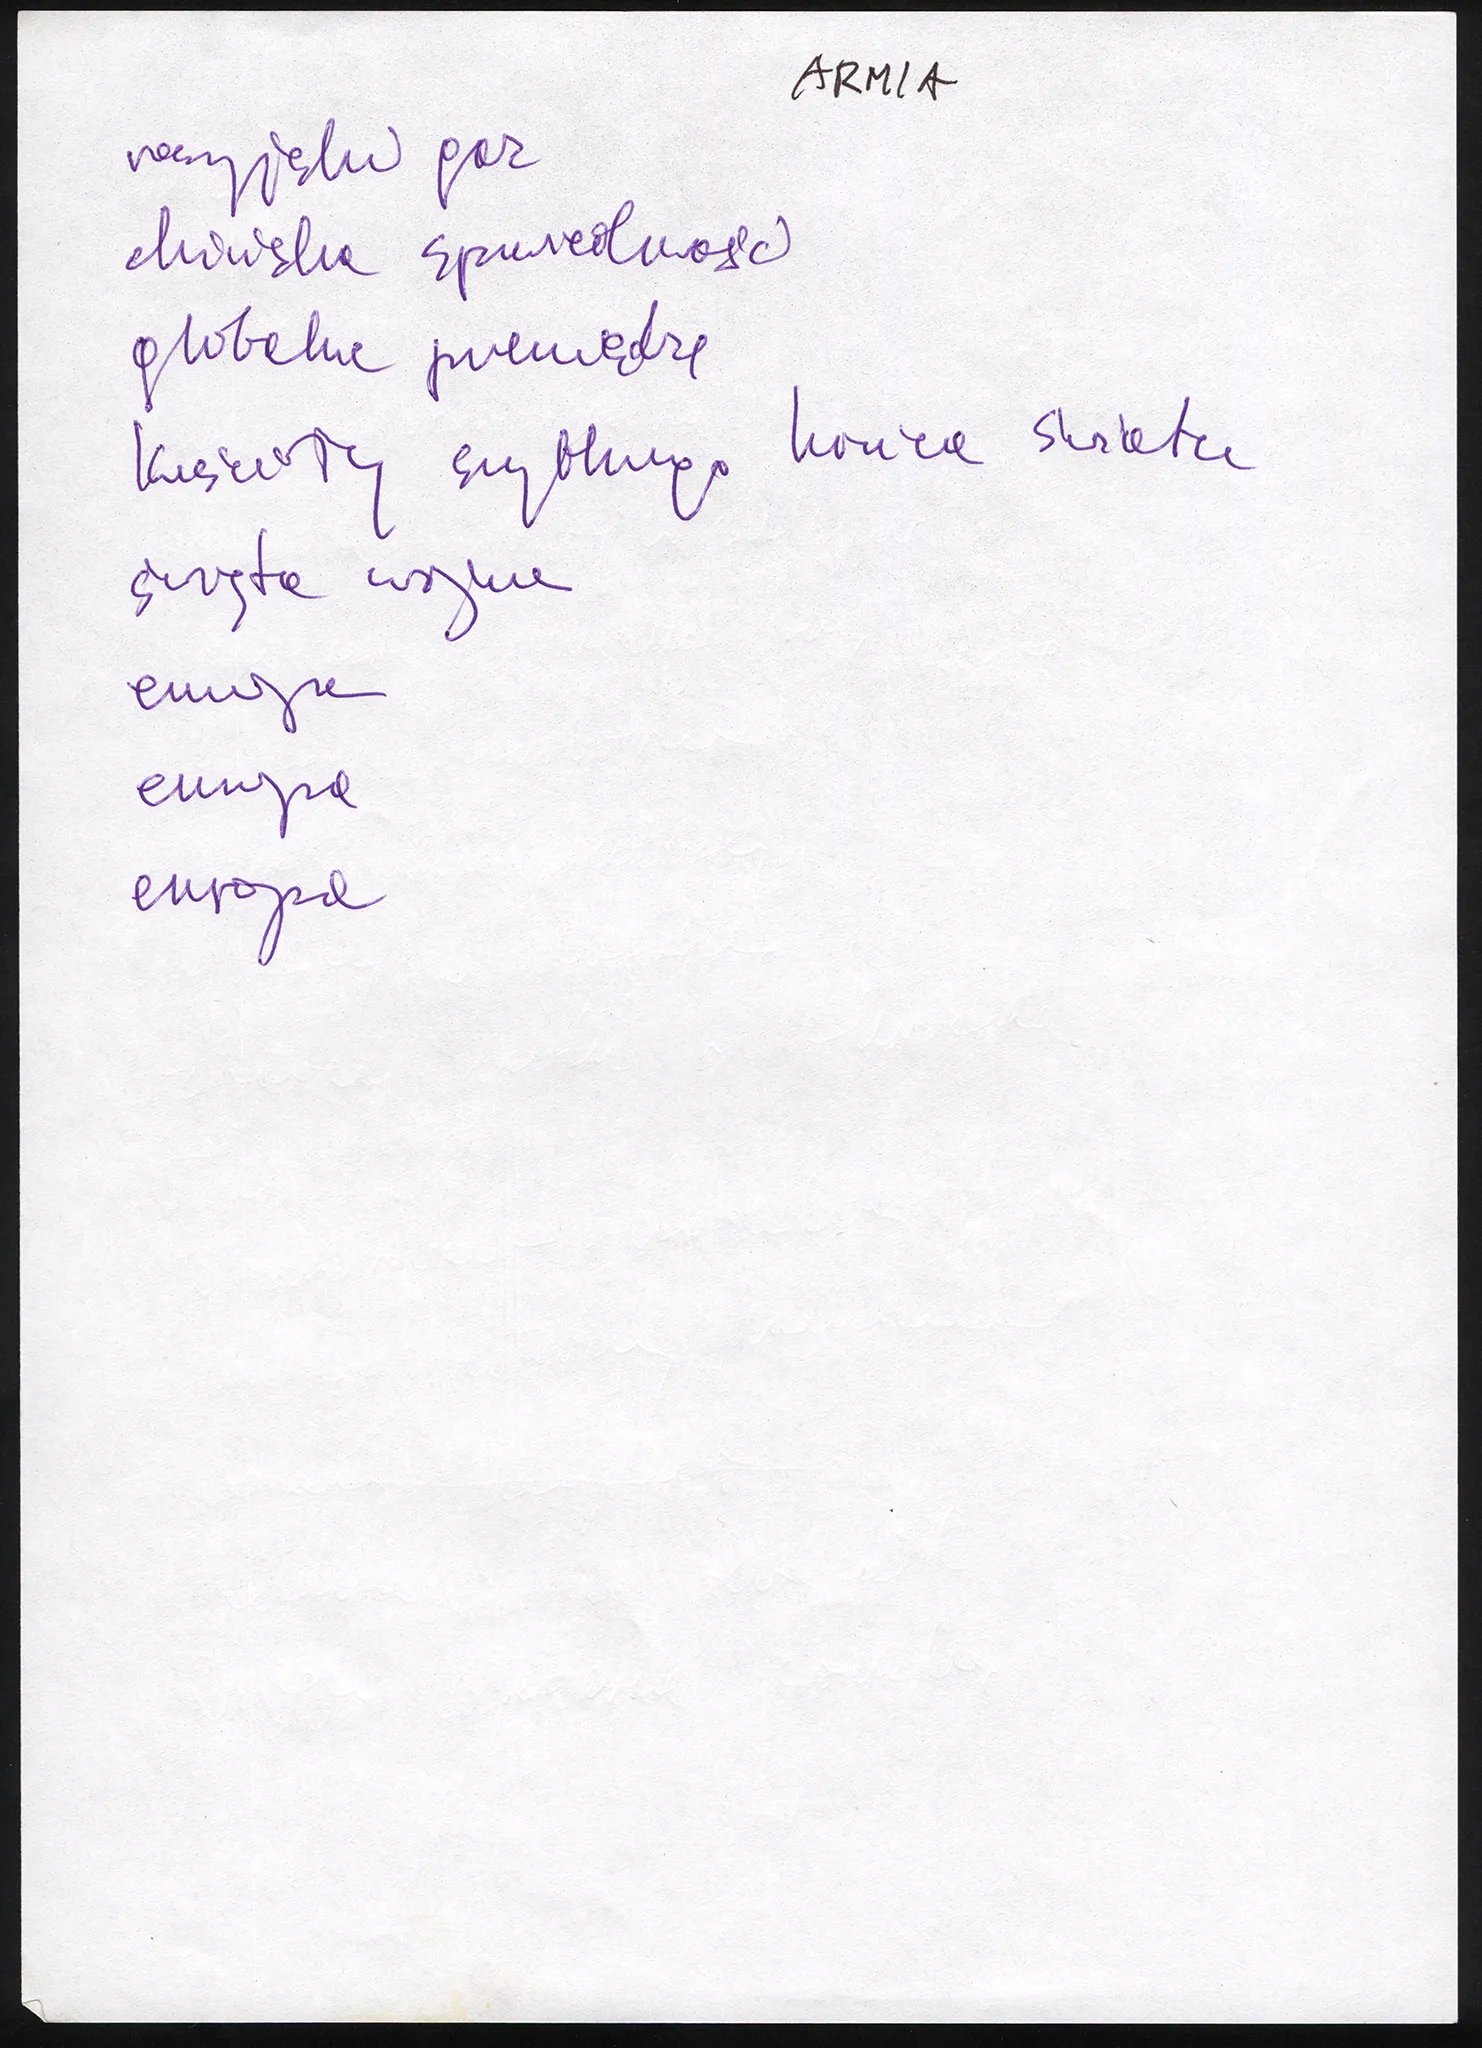 ARMIA
rosyjski gaz
chińska sprawiedliwość
globalne pieniądze
kościoły szybkiego końca świata
święta wojna
europa
europa
europa